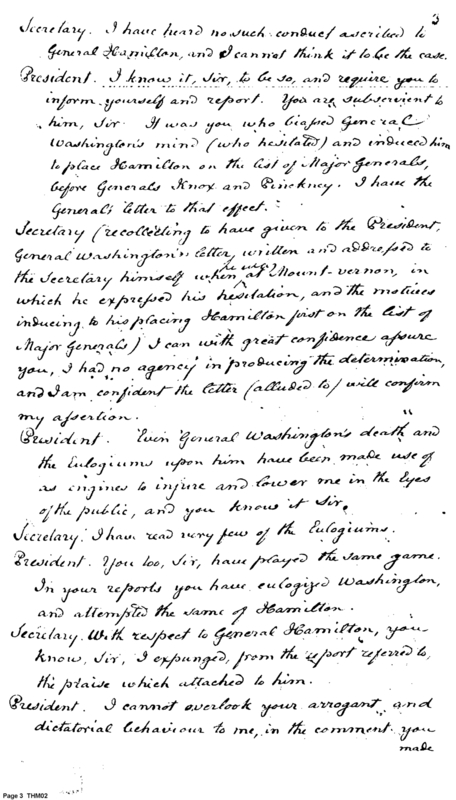 3
Secretary. I have heard no such conduct ascribed to
General Hamilton, and I cannot think it to be the case.
President. I know it, Sir, to be so, and require you to
inform yourself and report. You are subservient to
him, Sir. It was you who biassed General
Washington's mind (who hesitated) and induced him
to place Hamilton on the list of Major Generals,
before Generals Knox and Pinckney. I have the
General's letter to that effect.
Secretary (recollecting to have given to the President,
General Washington's letter, written and addressed to
the Secretary himself when he was at Mount-vernon, in
which he expressed his hesitation, and the motives
inducing to his placing Hamilton first on the list of
Major Generals) I can with great confidence assure
you, I had no agency in producing the determination,
and I am confident the letter (alluded to) will confirm
my assertion.
President. Even General Washington's death, and
the Eulogiums upon him have been made use of
as engines to injure and lower me in the Eyes
of the public, and you know it Sir.
Secretary. I have read very few of the Eulogiums.
President. You too, Sir, have played the same game.
In your reports you have eulogized Washington,
and attempted the same of Hamilton.
Secretary. With respect to General Hamilton, you
know, Sir, I expunged, from the report referred to,
the praise which attached to him.
President. I cannot overlook your arrogant and
dictatorial behaviour to me, in the comment you
made
Page 3 THM02